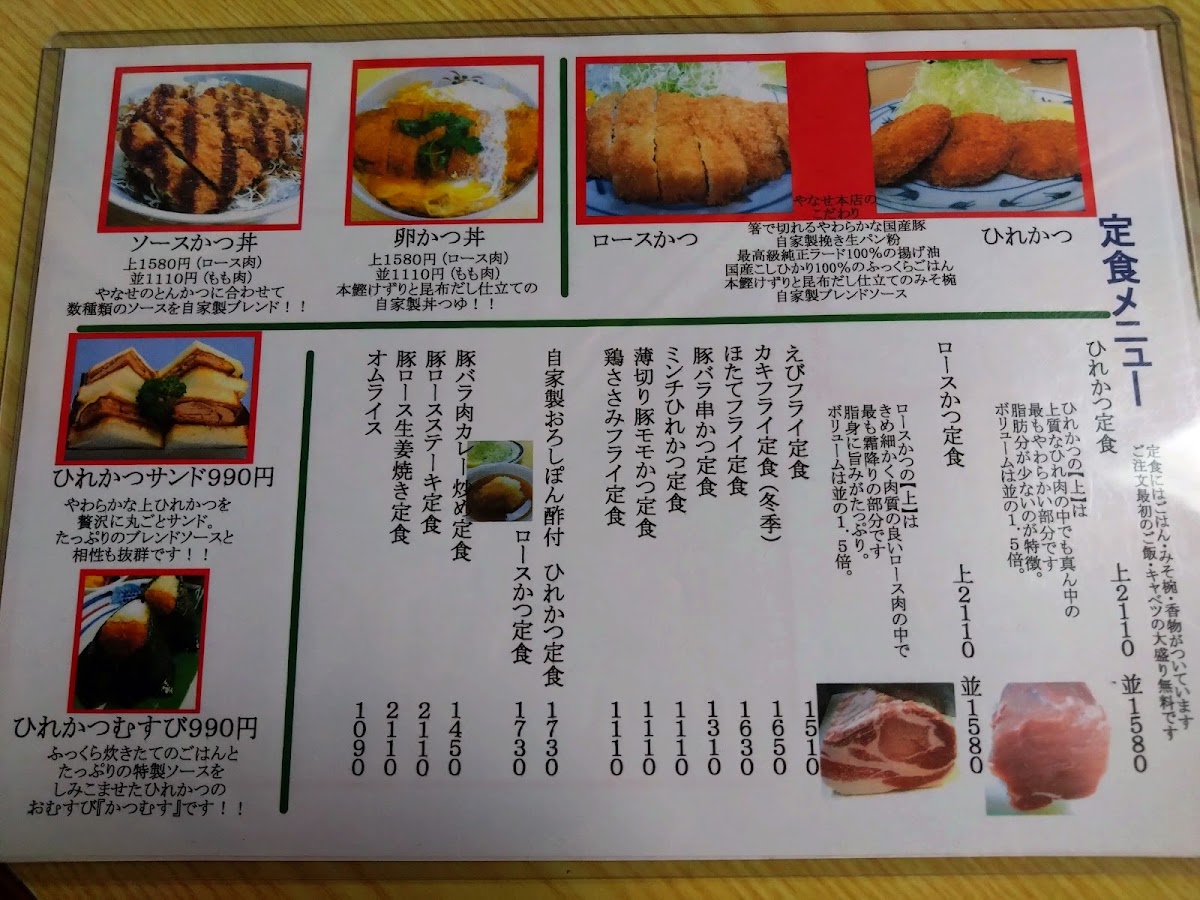 定食メニュー
定食にはごはん・みそ椀・香物がついています
ご注文最初のご飯・キャベツの大盛り無料です
ロースかつ
ひれかつ
やなせ本店の
こだわり
箸で切れるやわらかな国産豚
自家製挽き生パン粉
最高級純正ラード100%の揚げ油
国産こしひかり100%のふっくらごはん
本鰹けずりと昆布だし仕立てのみそ椀
自家製ブレンドソース
ソースかつ丼
上1580円(ロース肉)
並1110円(もも肉)
やなせのとんかつに合わせて
数種類のソースを自家製ブレンド!!
卵かつ丼
上1580円(ロース肉)
並1110円(もも肉)
本鰹けずりと昆布だし仕立ての
自家製丼つゆ!!
ひれかつ定食 上2110 並1580
ひれかつの【上】は
上質なひれ肉の中でも真ん中の
最もやわらかい部分です
脂肪分が少ないのが特徴。
ボリュームは並の1.5倍。
ロースかつ定食 上2110 並1580
ロースかつの【上】は
きめ細かく肉質の良いロース肉の中で
最も霜降りの部分です
脂身に旨みがたっぷり。
ボリュームは並の1.5倍。
えびフライ定食 1510
カキフライ定食(冬季) 1650
ほたてフライ定食 1630
豚バラ串かつ定食 1310
ミンチひれかつ定食 1110
薄切り豚モモかつ定食 1110
鶏ささみフライ定食 1110
自家製おろしぽん酢付 ひれかつ定食 1730
ロースかつ定食 1730
豚バラ肉カレー炒め定食 1450
豚ロースステーキ定食 2110
豚ロース生姜焼き定食 2110
オムライス 1090
ひれかつサンド990円
やわらかな上ひれかつを
贅沢に丸ごとサンド。
たっぷりのブレンドソースと
相性も抜群です!!
ひれかつむすび990円
ふっくら炊きたてのごはんと
たっぷりの特製ソースを
しみこませたひれかつの
おむすび『かつむす』です!!